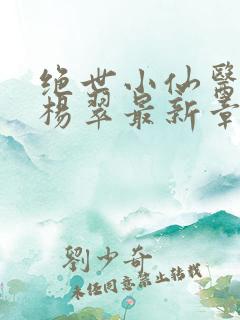 绝世小仙醫
楊翠最新章
劉少奇
未经同意禁止转载